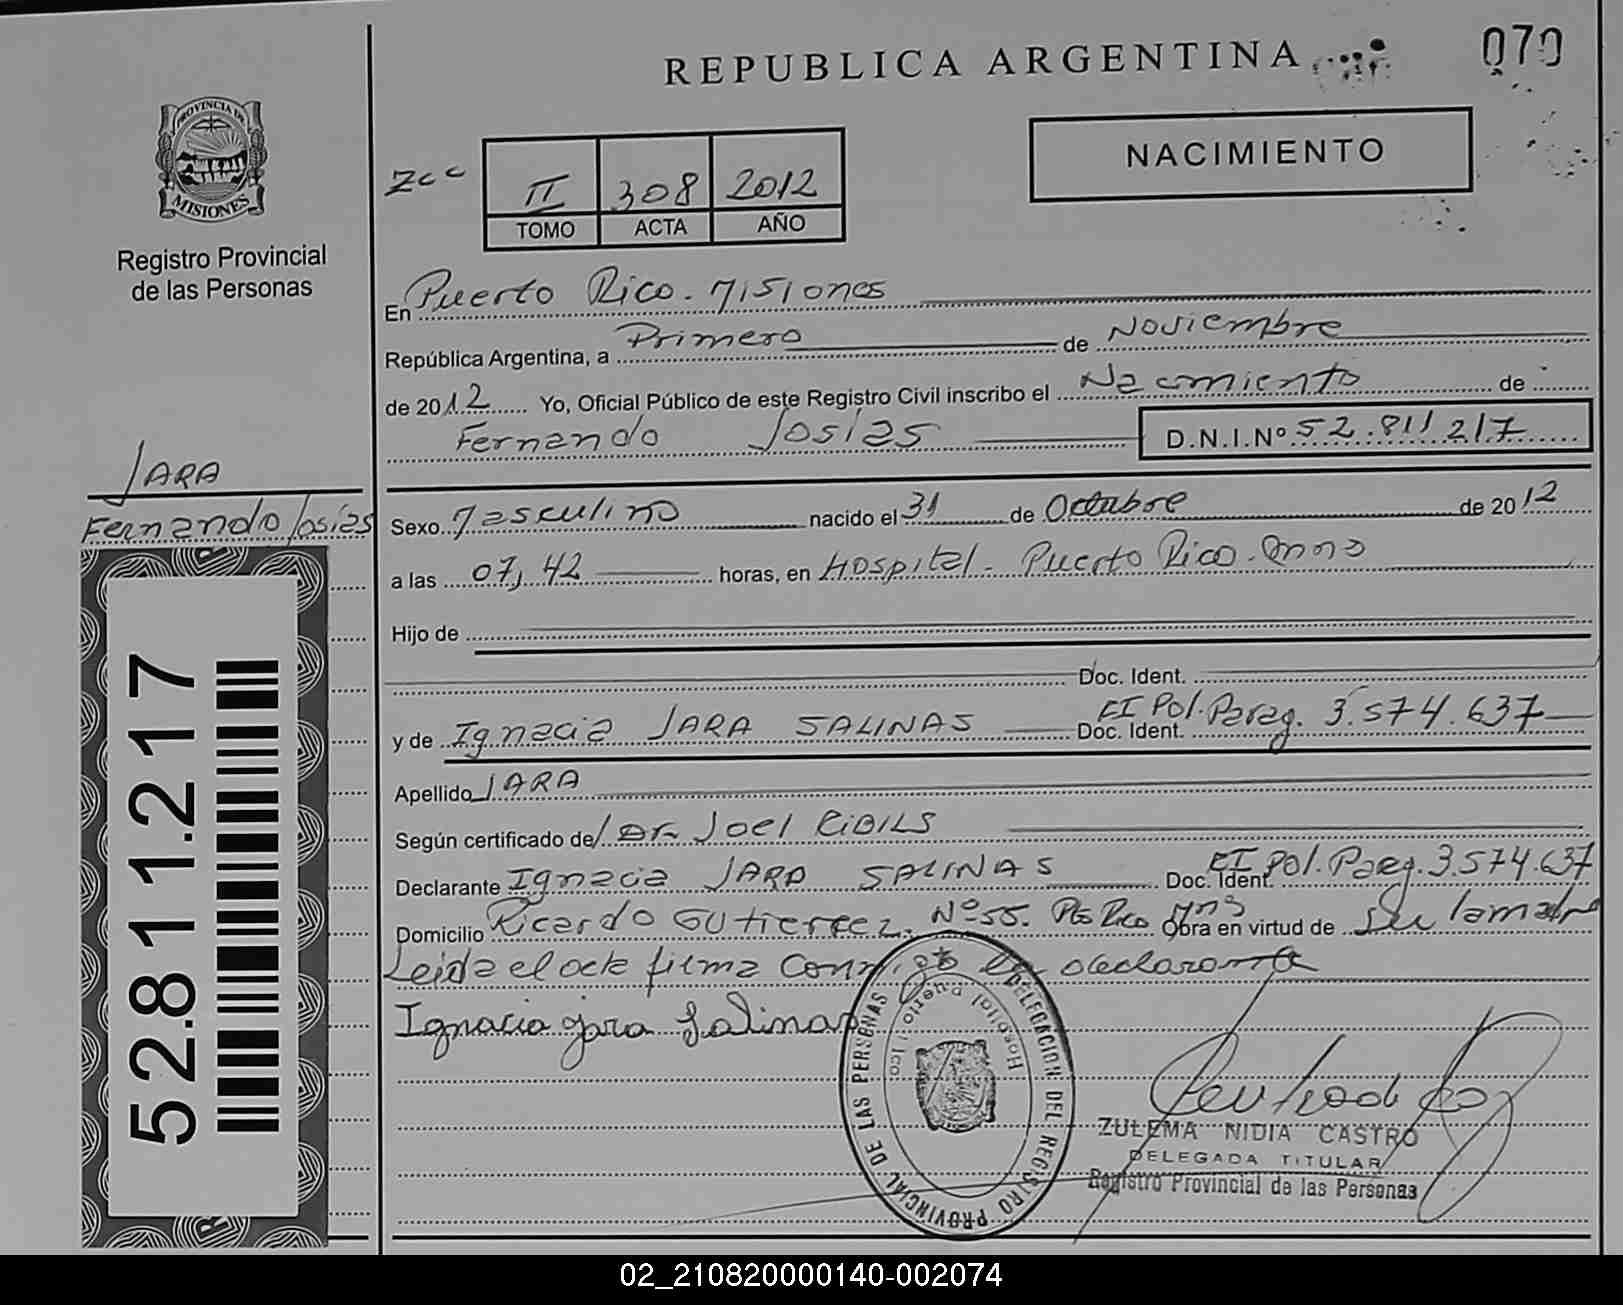 REPUBLICA ARGENTINA
070
PROVINCIA DE
MISIONES
Registro Provincial
de las Personas
NACIMIENTO
II 308 2012
TOMO ACTA AÑO
En Puerto Rico. Misiones
República Argentina, a Primero de Noviembre
de 2012 Yo, Oficial Público de este Registro Civil inscribo el Nacimiento de
Fernando Josias D.N.I.Nº 52.811.217
JARA
Fernando Josias
Sexo Masculino nacido el 31 de Octubre de 2012
a las 07,42 horas, en Hospital - Puerto Rico.
Hijo de
Doc. Ident.
y de Ignacia JARA SALINAS Doc. Ident. CI Pol. Parag. 3.574.637
Apellido JARA
Según certificado de Dr. Joel
Declarante Ignacia JARA SALINAS Doc. Ident. CI Pol. Parag. 3.574.637
Domicilio Ricardo GUTierrez. Nº 55. Pto Rico Mns Obra en virtud de Ser la madre
Leida el acta firma conmigo la declarante
Ignacia Jara Salinas
DELEGACION DEL REGISTRO PROVINCIAL DE LAS PERSONAS
Hospital Puerto Rico
ZULEMA NIDIA CASTRO
DELEGADA TITULAR
Registro Provincial de las Personas
52.811.217
02_210820000140-002074